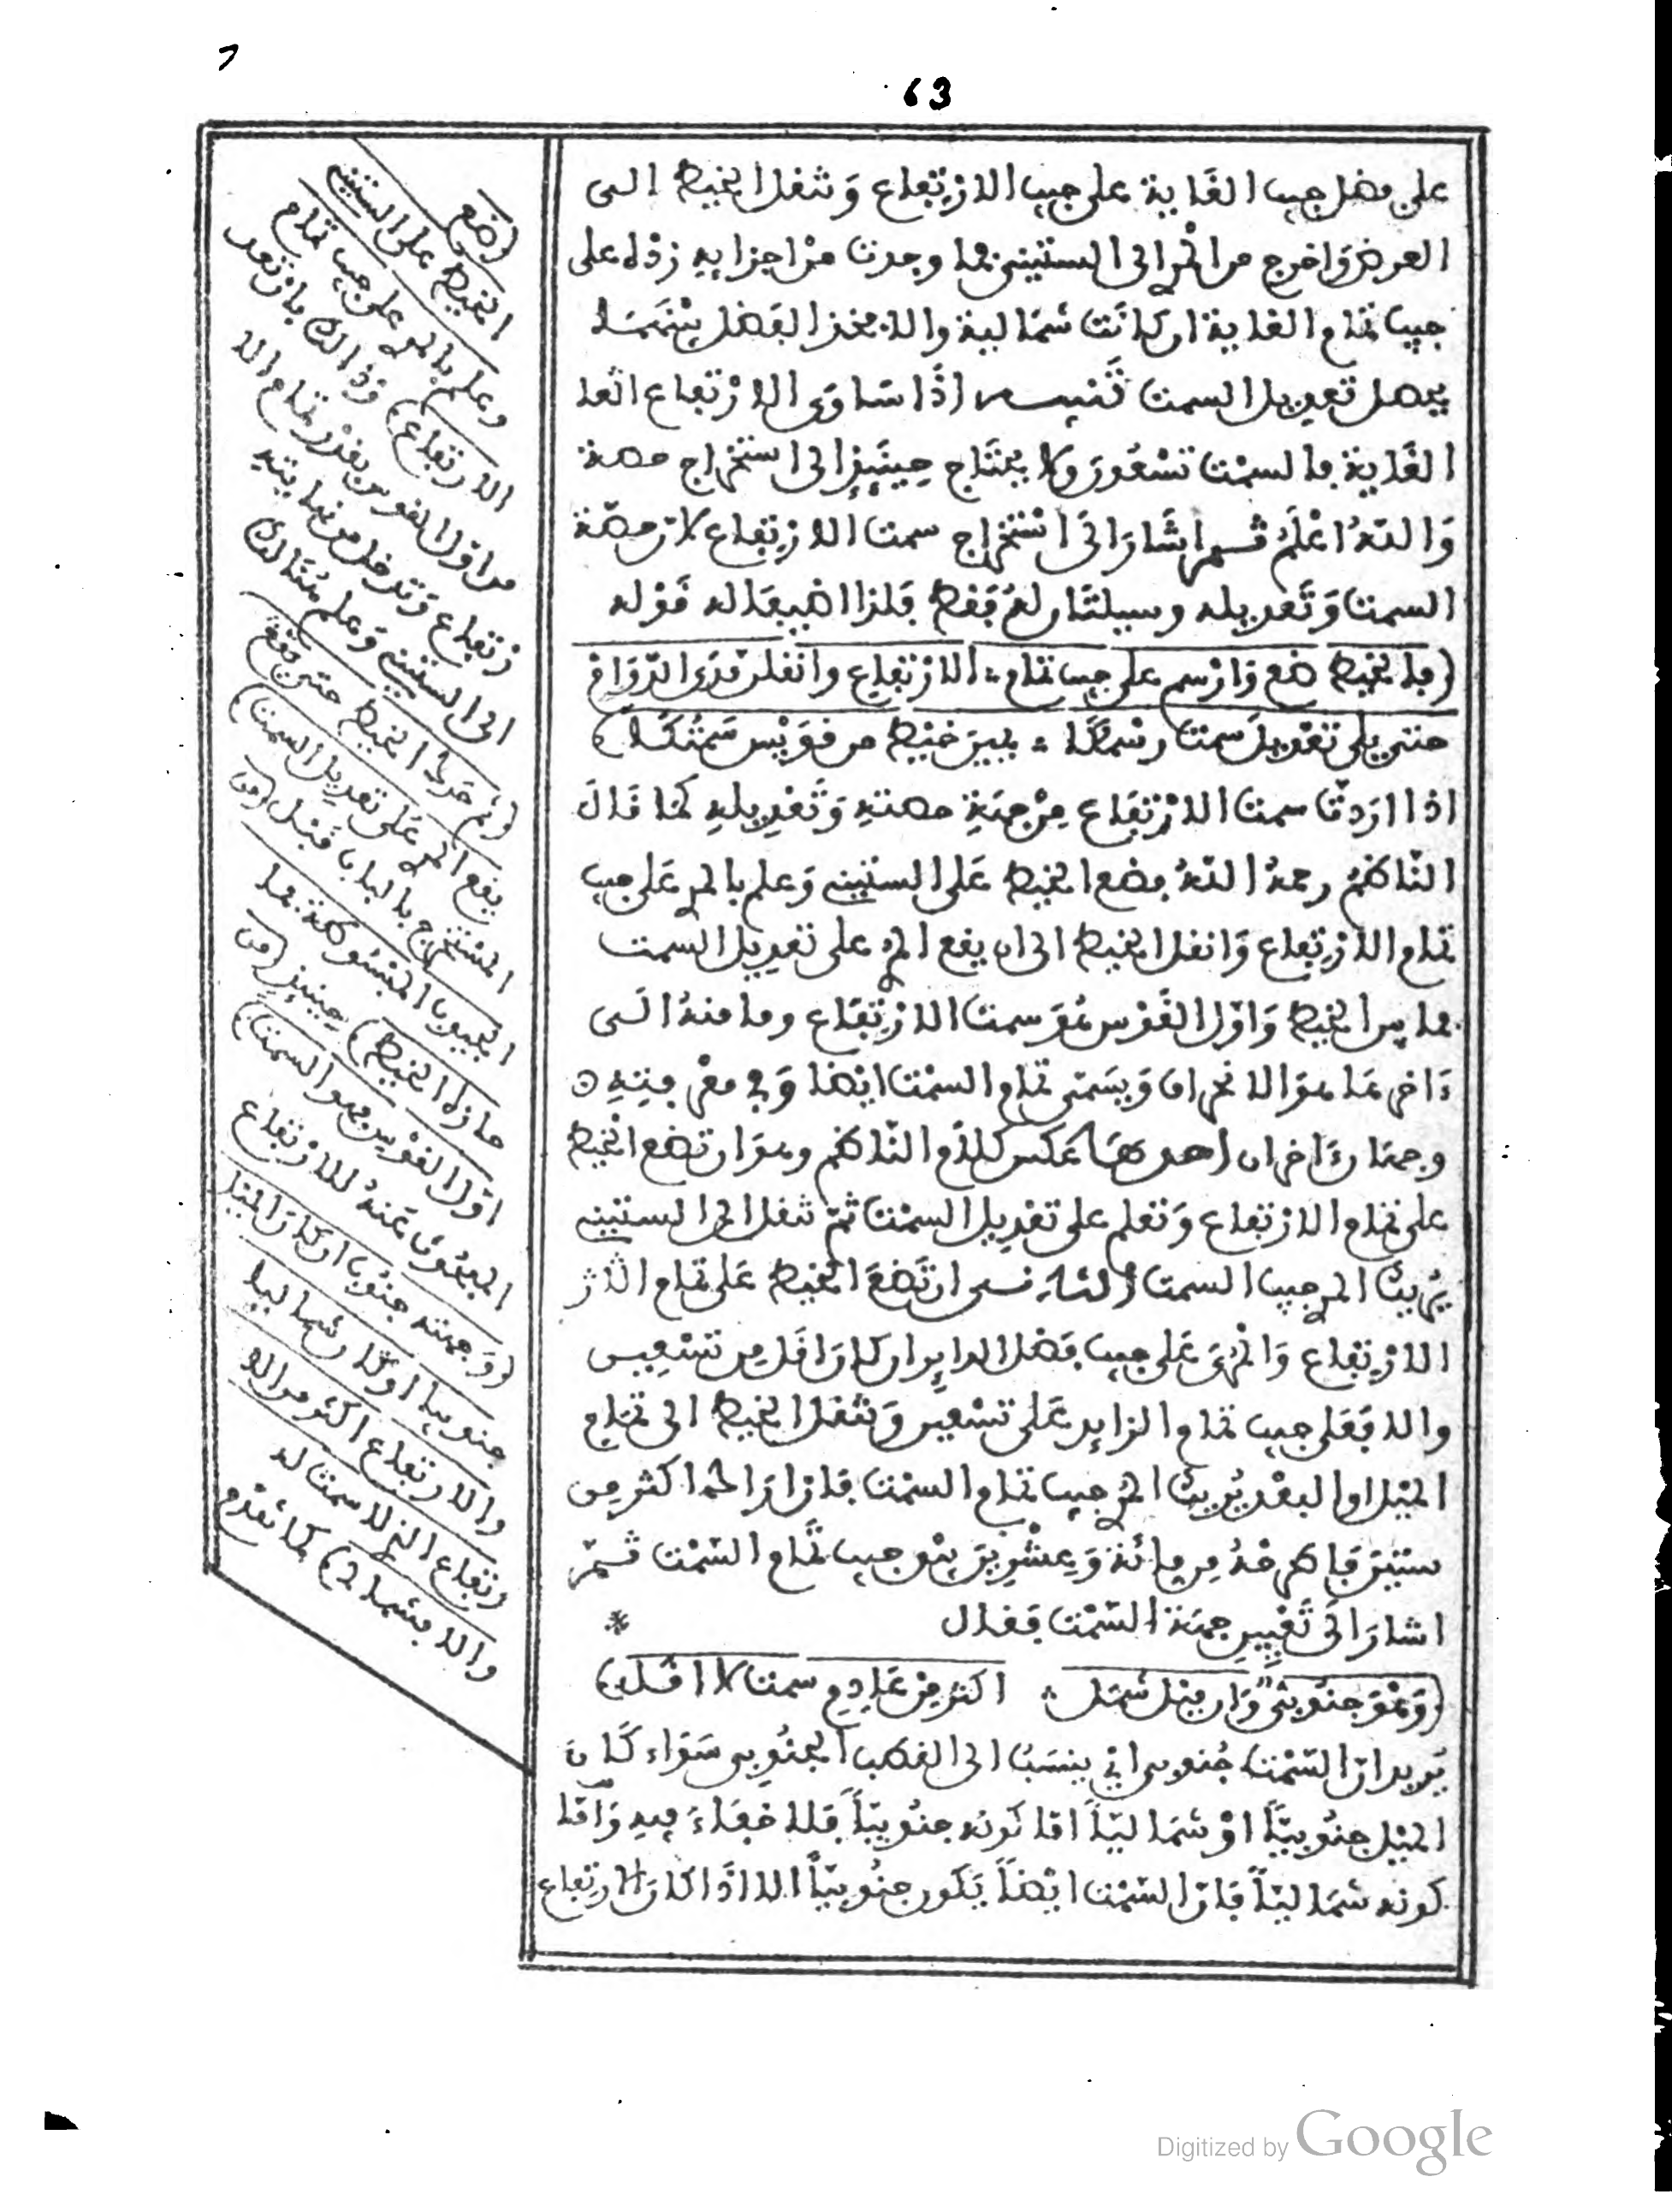 63
على فضل جيب الغاية على جيب الارتفاع وتنقل الخيط الى
العرض واخرج من المر الى الستين فما وجدت من اجزايه زده على
جيب تمام الغاية ان كانت شمالية والا فخذ الفضل بينهما
يحصل تعديل السمت تنبيه اذا ساوى الارتفاع
الغاية فالسمت تسعون ولا يحتاج حينئذ الى استخراج حصة
والله اعلم ثم اشار الى استخراج سمت الارتفاع لان حصة
السمت وتعديله وسيلتان له فقط فلذا اضيفا له قوله
(فالخيط ضع وارسم على جيب تمام الارتفاع وانقلن
حتى يلي تعديل سمت رسمكا بين خيط من قويس سمتكا)
اذا اردت سمت الارتفاع من جهة حصته وتعديله كما قال
الناظم رحمه الله فضع الخيط على الستين وعلم بالمر على جيب
تمام الارتفاع وانقل الخيط الى ان يقع المر على تعديل السمت
فما بين الخيط واول القوس هو سمت الارتفاع وما منه الى
ءاخرها هو الانحراف ويسمى تمام السمت ايضا وفي معرفته
وجهان ءاخران احدهما عكس كلام الناظم وهو ان تضع الخيط
على تمام الارتفاع وتعلم على تعديل السمت ثم تنقل الى الستين
يريك المر جيب السمت الثاني ان تضع الخيط على تمام الار
الارتفاع والمرى على جيب فضل الداير ان كان اقل من تسعين
والا فعلى جيب تمام الزايد على تسعين وتنقل الخيط الى تمام
الميل او البعد يريك المر جيب تمام السمت فان زاد اكثر من
ستين فاطرحه من مائة وعشرين يبق جيب تمام السمت ثم
اشار الى تعيين جهة السمت فقال *
(وهو جنوبي وان ميل شمل اكثر من سمت لا اقل)
يريد ان السمت جنوبي اي ينسب الى القطب الجنوبي سواء كان
الميل جنوبيا او شماليا اما كونه جنوبيا فلا خفاء فيه واما
كونه شماليا فان السمت ايضا يكون جنوبيا الا اذا كان الارتفاع
(ضع
الخيط على الستين
وعلم بالمر على جيب تمام
الارتفاع) وذالك بان تعد
من اول القوس بقدر تمام الا
رتفاع وتدخل من نهايته
الى الستين وعلم هنالك
(ثم حرك الخيط حتى يقع
يقع المر على تعديل السمت)
المستخرج بالباب قبل (من
الجيوب المبسوطة فما
حازه الخيط) حينئذ (من
اول القوس فهو السمت)
المبحوث عنه للارتفاع
(وجهته جنوب ان كان الميل
جنوبيا او كان شماليا
والارتفاع اكثر من الا
رتفاع الذي لا سمت له
والا فشمال) كما تقدم
Digitized by Google